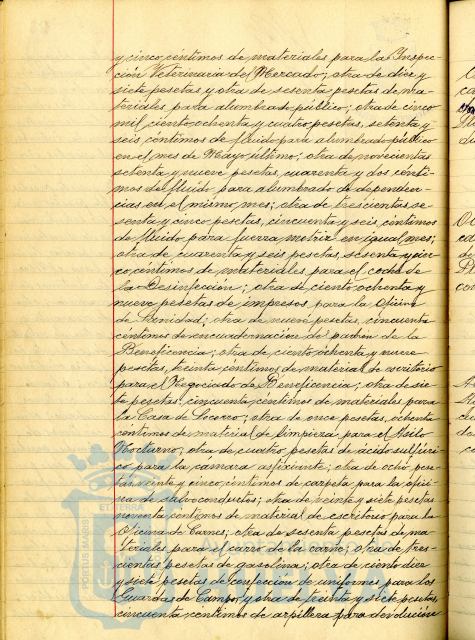 y cinco céntimos de materiales para la Inspec-
ción Veterinaria del Mercado; otra de diez y
siete pesetas y otra de sesenta pesetas de ma-
teriales para alumbrado público; otra de cinco
mil ciento ochenta y cuatro pesetas, setenta y
seis céntimos de fluido para alumbrado público
en el mes de Mayo último; otra de novecientas
setenta y nueve pesetas, cuarenta y dos cénti-
mos de fluido para alumbrado de dependen-
cias en el mismo mes; otra de trescientas se-
senta y cinco pesetas, cincuenta y seis céntimos
de fluido para fuerza motriz en igual mes;
otra de cuarenta y seis pesetas, sesenta y cin-
co céntimos de materiales para el coche de
la Desinfección; otra de ciento ochenta y
nueve pesetas de impresos para la Oficina
de Sanidad; otra de nueve pesetas, cincuenta
céntimos de encuadernación del padrón de la
Beneficencia; otra de ciento ochenta y nueve
pesetas, treinta céntimos de material de escritorio
para el Negociado de Beneficencia; otra de sie-
te pesetas, cincuenta céntimos de materiales para
la Casa de Socorro; otra de once pesetas, ochenta
céntimos de material de limpieza para el Asilo
Nocturno; otra de cuatro pesetas de ácido sulfúri-
co para la cámara asfixiante; otra de ocho pese-
tas, veinte y cinco céntimos de carpeta para la ofici-
na de salvoconductos; otra de veinte y siete pesetas
noventa céntimos de material de escritorio para la
Oficina de Carnes; otra de sesenta pesetas de ma-
teriales para el carro de la carne; otra de tres-
cientas pesetas de gasolina; otra de ciento diez
y siete pesetas de confección de uniformes para los
Guardas de Campo y otra de treinta y siete pesetas,
cincuenta céntimos de arpillera para devolución